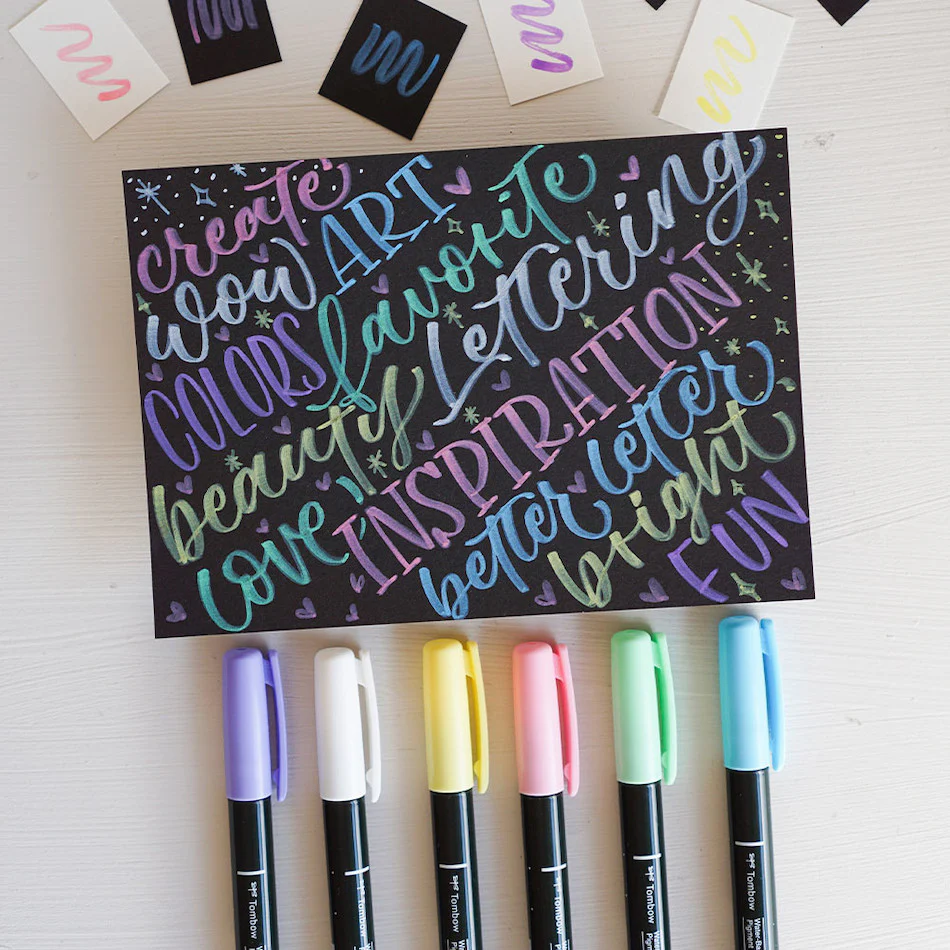 create
ART
favorite
Lettering
wow
COLORS
beauty
INSPIRATION
love
better letter
bright
FUN
Tombow
Tombow
Tombow
Tombow
Tombow
Tombow
Pigment